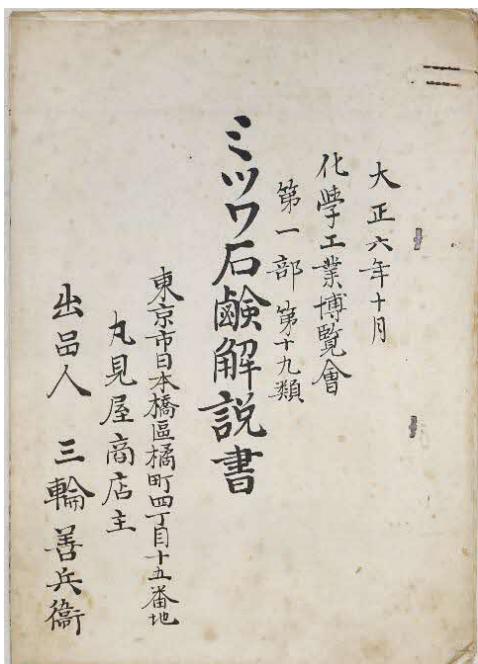 大正六年十月
化學工業博覽會
第一部 第十九類
ミツワ石鹸解説書
東京市日本橋區橘町四丁目十五番地
丸見屋商店主
出品人 三輪善兵衞